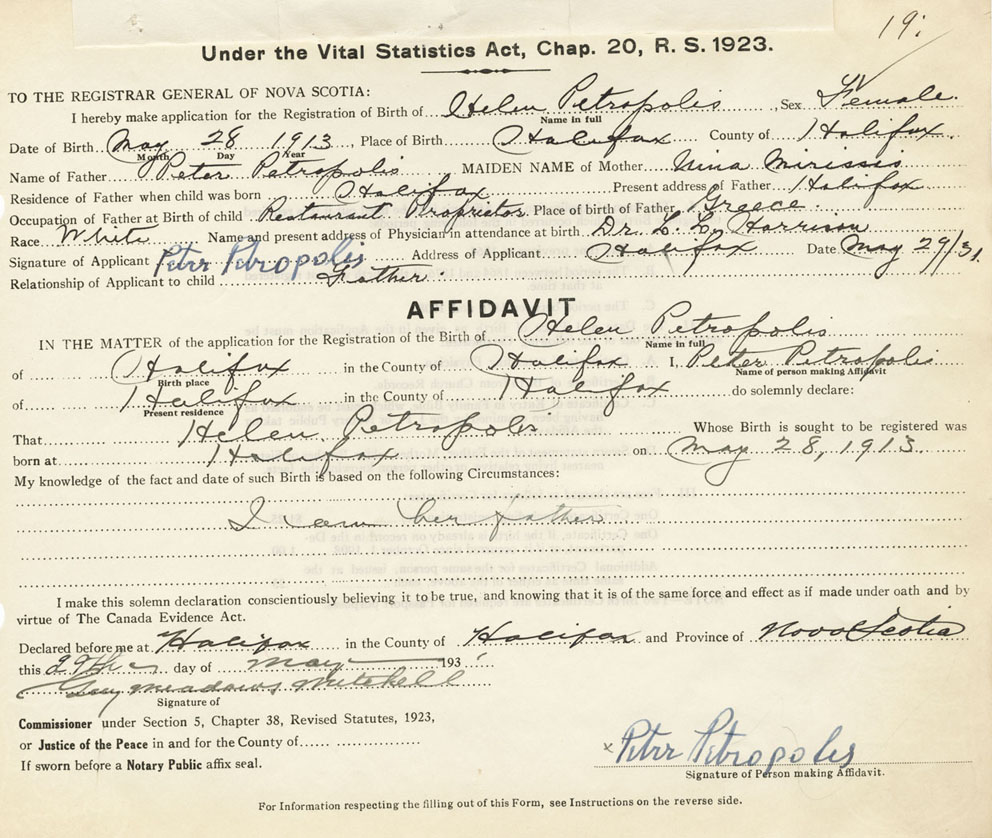 19:
Under the Vital Statistics Act, Chap. 20, R. S. 1923.
TO THE REGISTRAR GENERAL OF NOVA SCOTIA:
I hereby make application for the Registration of Birth of Helen Petropolis, Sex Female.
Name in full
Date of Birth May 28 1913, Place of Birth Halifax County of Halifax
Month Day Year
Name of Father Peter Petropolis MAIDEN NAME of Mother Nina Mirissis
Residence of Father when child was born Halifax Present address of Father Halifax
Occupation of Father at Birth of child Restaurant Proprietor Place of birth of Father Greece.
Race White Name and present address of Physician in attendance at birth Dr. L. L. Harrison
Signature of Applicant Peter Petropolis Address of Applicant Halifax Date May 29/31.
Relationship of Applicant to child Father.
AFFIDAVIT
IN THE MATTER of the application for the Registration of the Birth of Helen Petropolis
Name in full
of Halifax in the County of Halifax I, Peter Petropolis
Birth place Name of person making Affidavit
of Halifax in the County of Halifax do solemnly declare:
Present residence
That Helen Petropolis Whose Birth is sought to be registered was
born at Halifax on May 28, 1913.
My knowledge of the fact and date of such Birth is based on the following Circumstances:
I am her father
I make this solemn declaration conscientiously believing it to be true, and knowing that it is of the same force and effect as if made under oath and by
virtue of The Canada Evidence Act.
Declared before me at Halifax in the County of Halifax and Province of Nova Scotia
this 29th day of May 193
Guy Meadows Mitchell
Signature of
Commissioner under Section 5, Chapter 38, Revised Statutes, 1923,
or Justice of the Peace in and for the County of
If sworn before a Notary Public affix seal.
x Peter Petropolis
Signature of Person making Affidavit.
For Information respecting the filling out of this Form, see Instructions on the reverse side.